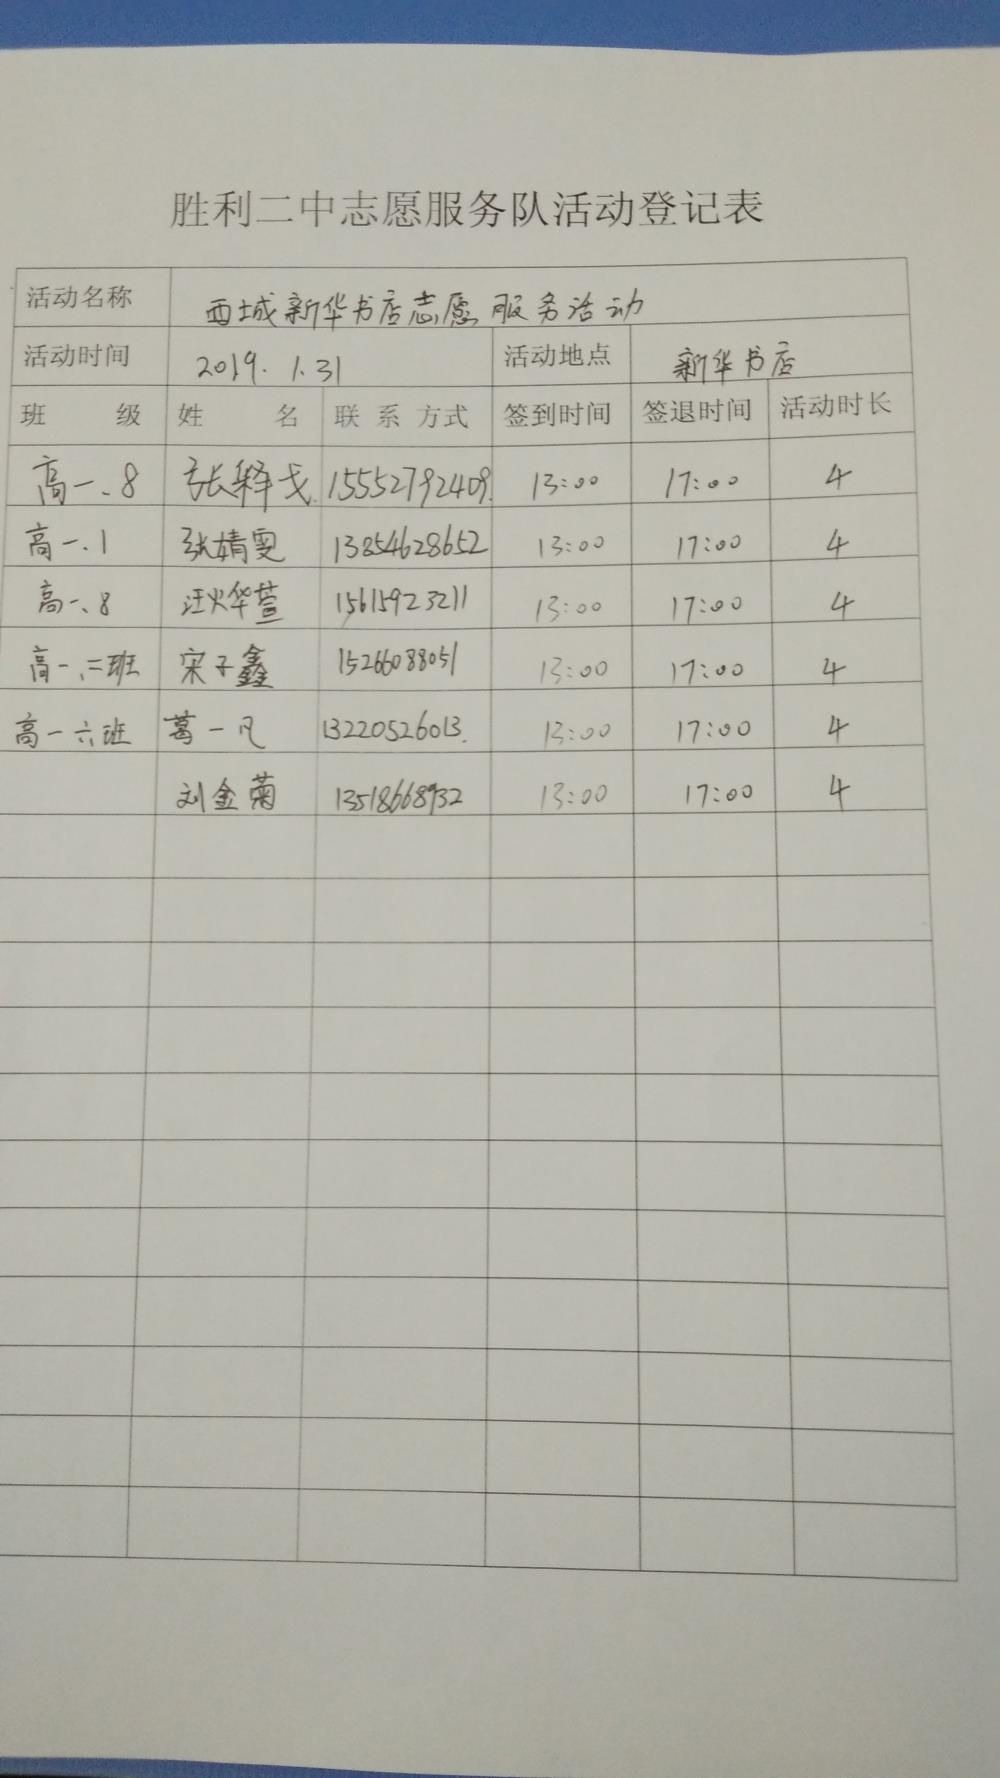 胜利二中志愿服务队活动登记表
活动名称 西城新华书店志愿服务活动
活动时间 2019.1.31 活动地点 新华书店
班 级 姓 名 联系方式 签到时间 签退时间 活动时长
高一、8 张释戈 15552792409 13:00 17:00 4
高一.1 张婧雯 13854628652 13:00 17:00 4
高一、8 汪烨萱 15615923211 13:00 17:00 4
高一、二班 宋子鑫 15266088051 13:00 17:00 4
高一六班 葛一凡 13220526013. 13:00 17:00 4
刘金菊 13518668932 13:00 17:00 4